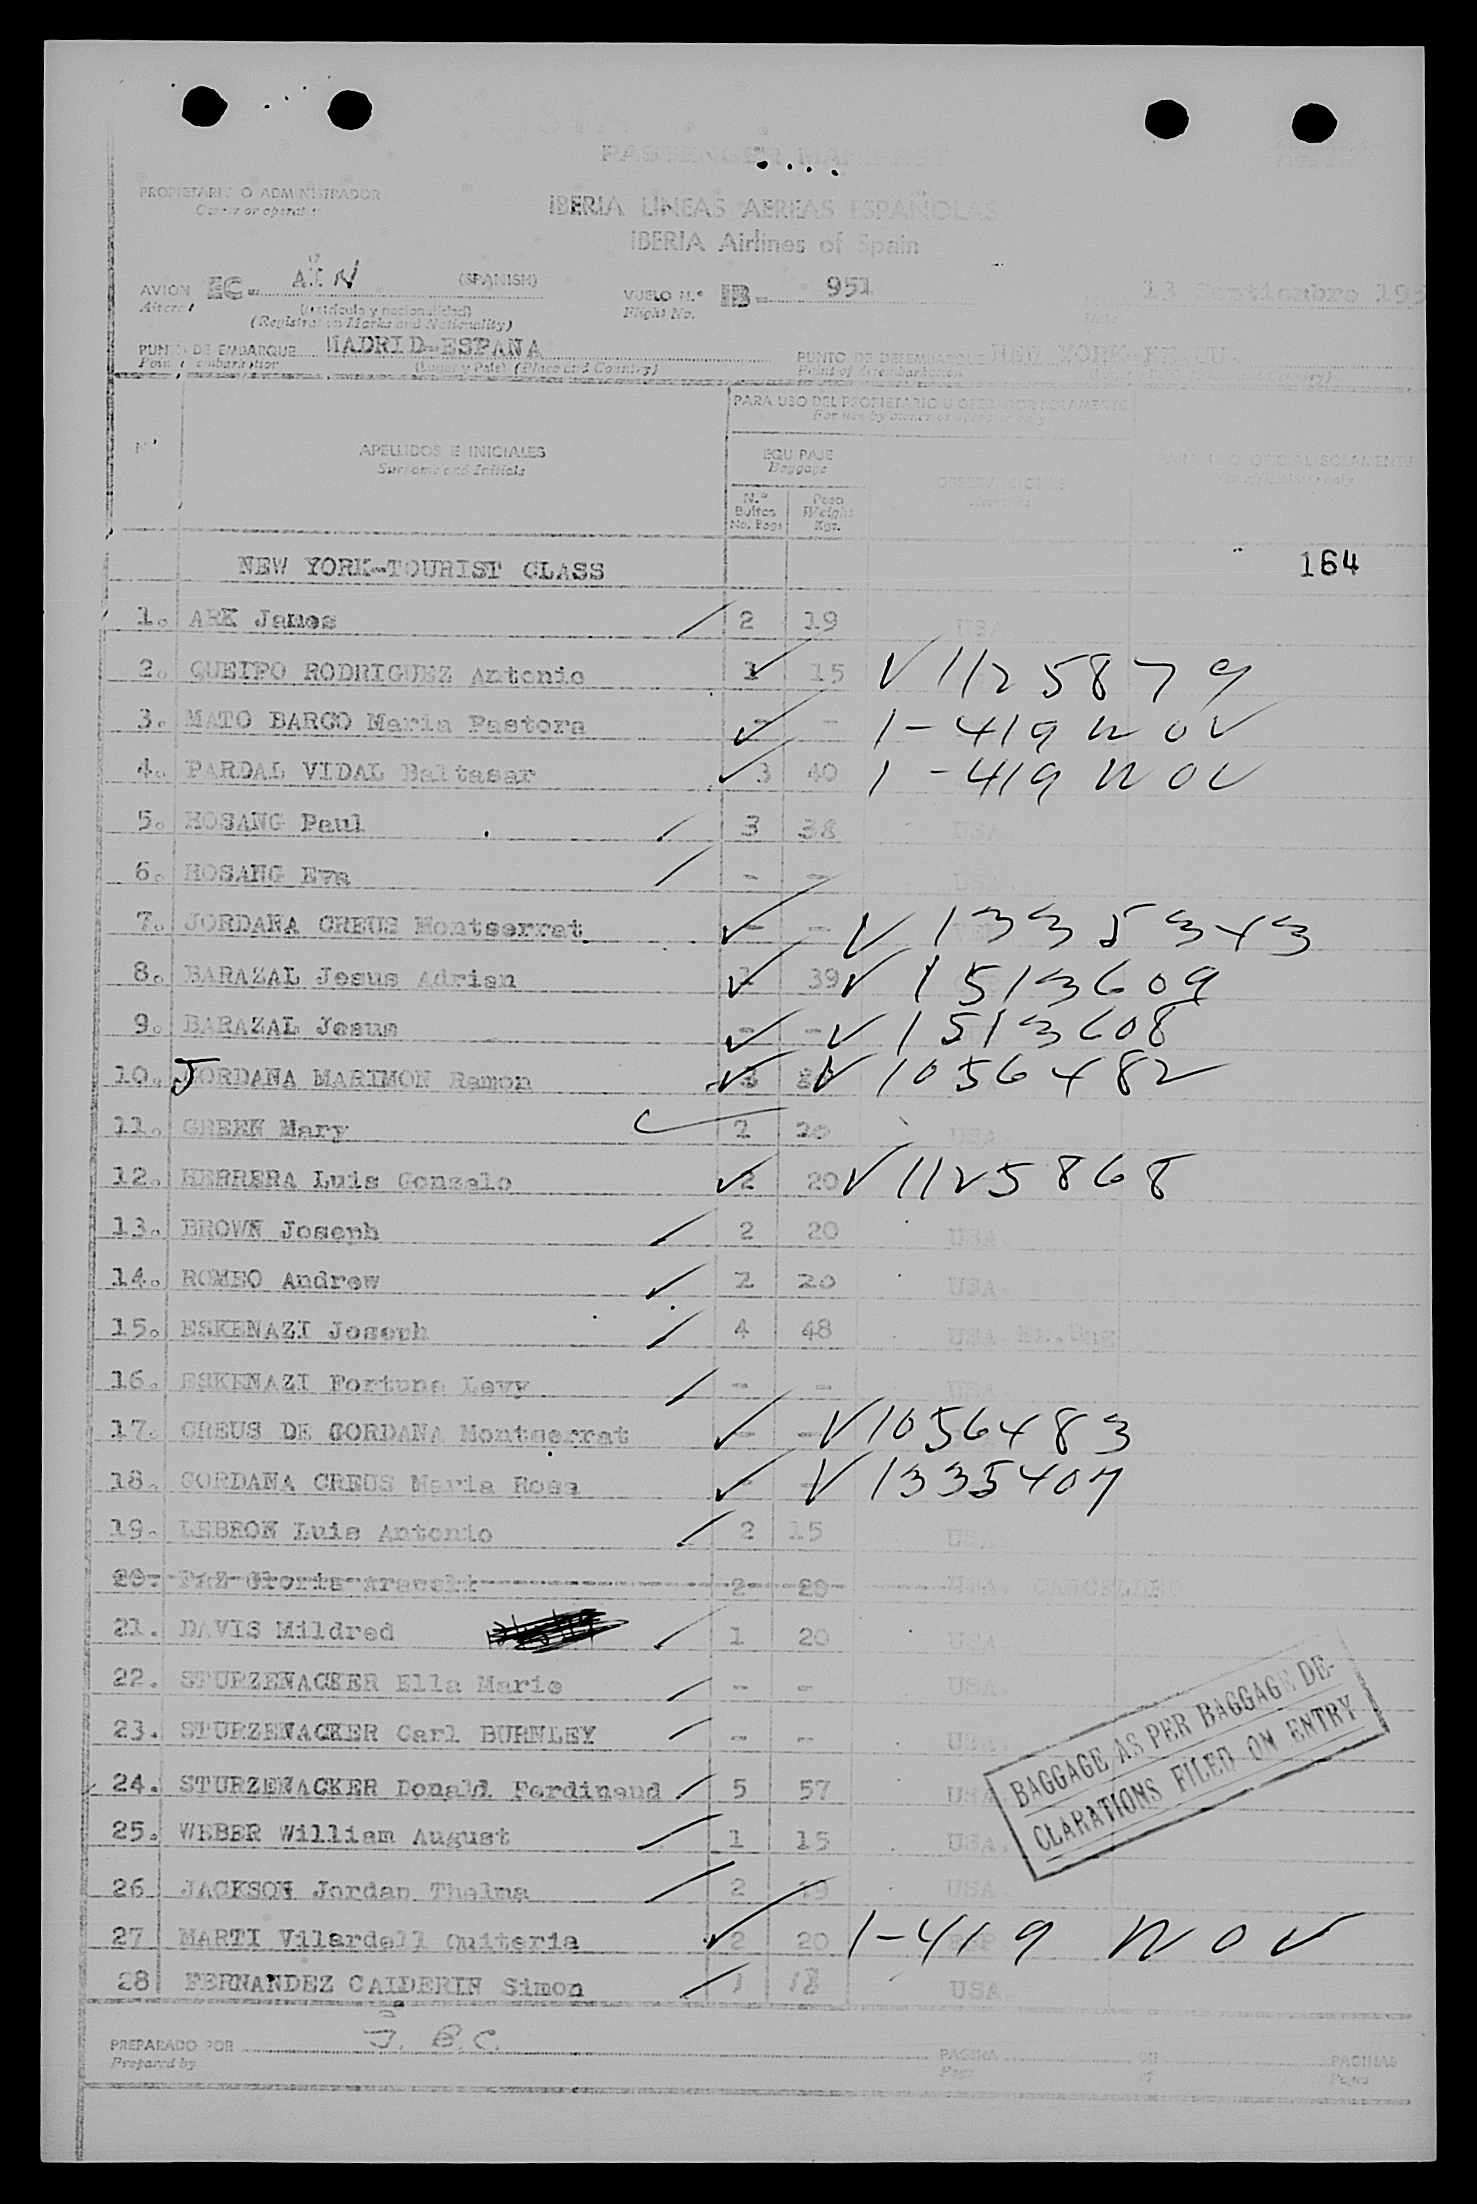 PASSENGER MANIFEST
PROPIETARIO O ADMINISTRADOR
Owner or operator
IBERIA LINEAS AEREAS ESPAÑOLAS
IBERIA Airlines of Spain
AVION EC- (SPANISH)
(Matrícula y nacionalidad)
(Registration Marks and Nationality)
VUELO N.º IB- 951
Flight No.
13 Septiembre
PUNTO DE EMBARQUE MADRID-ESPAÑA
Point of embarkation (Lugar y País) (Place and Country)
PUNTO DE DESEMBARQUE NEW YORK
Point of disembarkation
PARA USO DEL PROPIETARIO U OPERADOR SOLAMENTE
For use by owner or operator only
N.º
APELLIDOS E INICIALES
Surname and Initials
EQUIPAJE
Baggage
N.º Bultos No. Bags
Peso Weight Kgr.
OBSERVACIONES
PARA USO OFICIAL SOLAMENTE
NEW YORK-TOURIST CLASS 164
1. ARK James 2 19 USA
2. QUEIPO RODRIGUEZ Antonio 1 15 V1125879
3. MATO BARCO Maria Pastora - - 1-419 NOV
4. PARDAL VIDAL Baltasar 3 40 1-419 NOV
5. HOSANG Paul 3 38 USA.
6. HOSANG Eva - - USA.
7. JORDANA CREUS Montserrat - - V1335343
8. BARAZAL Jesus Adrian 1 39 V1513609
9. BARAZAL Jesus - - V1513608
10. JORDANA MARIMON Ramon V1056482
11. GREEN Mary 2 20 USA.
12. HERRERA Luis Gonzalo 2 20 V1125868
13. BROWN Joseph 2 20 USA.
14. ROMEO Andrew 2 20 USA.
15. ESKENAZI Joseph 4 48 USA
16. ESKENAZI Fortune Levy - - USA.
17. CREUS DE GORDANA Montserrat - - V1056483
18. GORDANA CREUS Maria Rosa - - V1335407
19. LEBRON Luis Antonio 2 15 USA
20. PAZ Gloria Araceli 2 20 USA.
21. DAVIS Mildred 1 20 USA
22. STURZENACKER Ella Marie - - USA.
23. STURZENACKER Carl BURNLEY - - USA.
24. STURZENACKER Donald Ferdinand 5 57 USA
25. WEBER William August 1 15 USA.
26 JACKSON Jordan Thelma 2 19 USA
27 MARTI Vilardell Quiteria 2 20 1-419 NOV
28 FERNANDEZ CALDERIN Simon 1 18 USA
BAGGAGE AS PER BAGGAGE DE-
CLARATIONS FILED ON ENTRY
PREPARADO POR
Prepared by
PAGINA DE PAGINAS
Page of Pages